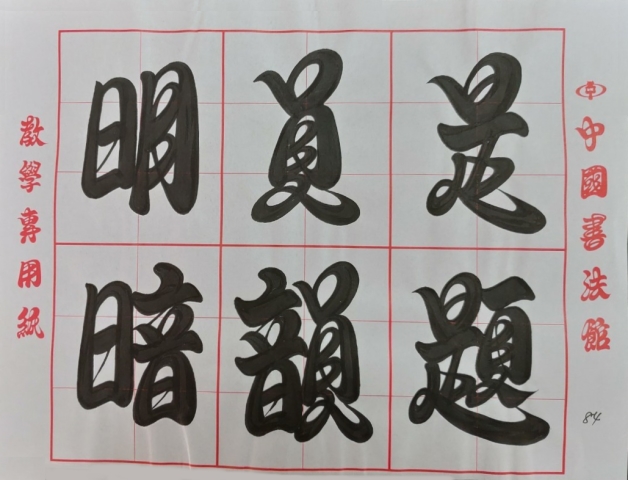 中國書法館
84
是題
員韻
明暗
教學專用紙